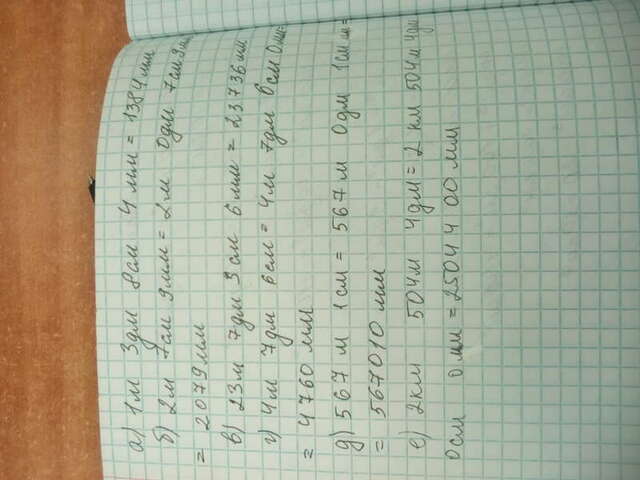 а) 1м 3дм 8см 4мм = 1384мм
б) 2м 7см 9мм = 2м 0дм 7см 9мм
= 2079мм
в) 23м 7дм 3см 6мм = 23736мм
г) 4м 7дм 6см = 4м 7дм 6см 0мм=
= 4760 мм
д) 567 м 1см = 567м 0дм 1см =
= 567010 мм
е) 2км 504м 4дм = 2 км 504м 4дм
0см 0мм = 25044 00 мм